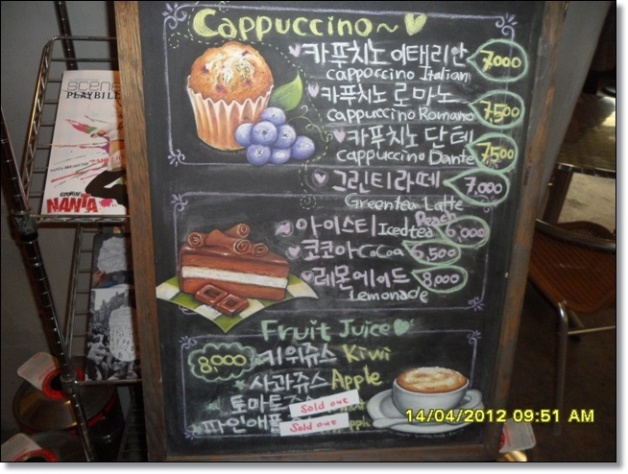 Cappuccino~
카푸치노 이태리안 7,000
cappoccino Italian
카푸치노 로마노
cappuccino Romano 7,500
카푸치노 단테
cappuccino Dante 7,500
그린티라떼 7,000
Greentea Latte
아이스티 Icedtea Peach 6,000
코코아 CoCoa 6,500
레몬에이드 8,000
Lemonade
Fruit Juice
8,000 키위쥬스 Kiwi
사과쥬스 Apple
토마토
Sold out
파인애플
Sold out
scene
PLAYBILL
NANTA
14/04/2012 09:51 AM